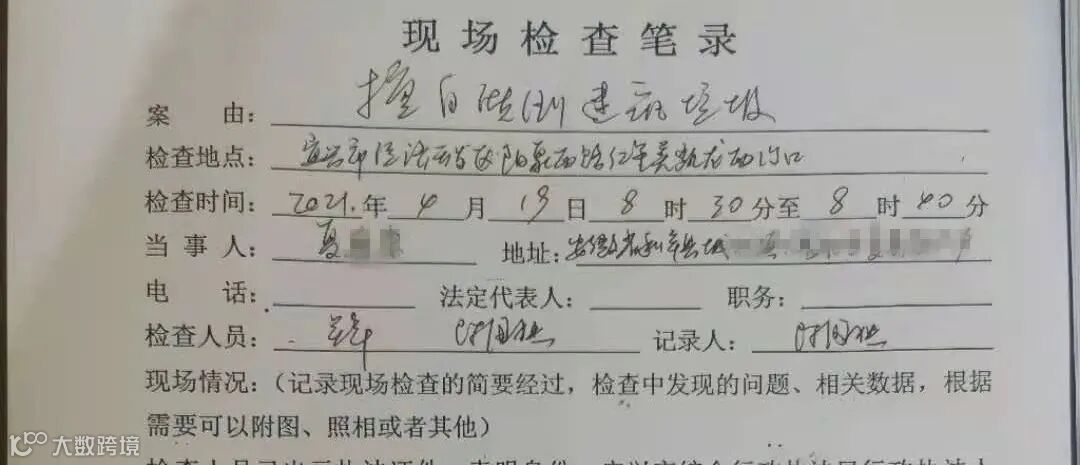 现场检查笔录
案 由： 擅自倾倒建筑垃圾
检查地点： 宜兴市经济开发区阳泉西路
检查时间： 2021.年 4 月 19 日 8 时 30 分至 8 时 40 分
当事人： 夏 地址： 安徽省利辛县城
电 话： 法定代表人： 职务：
检查人员： 记录人：
现场情况：（记录现场检查的简要经过，检查中发现的问题、相关数据，根据
需要可以附图、照相或者其他）
大数跨境